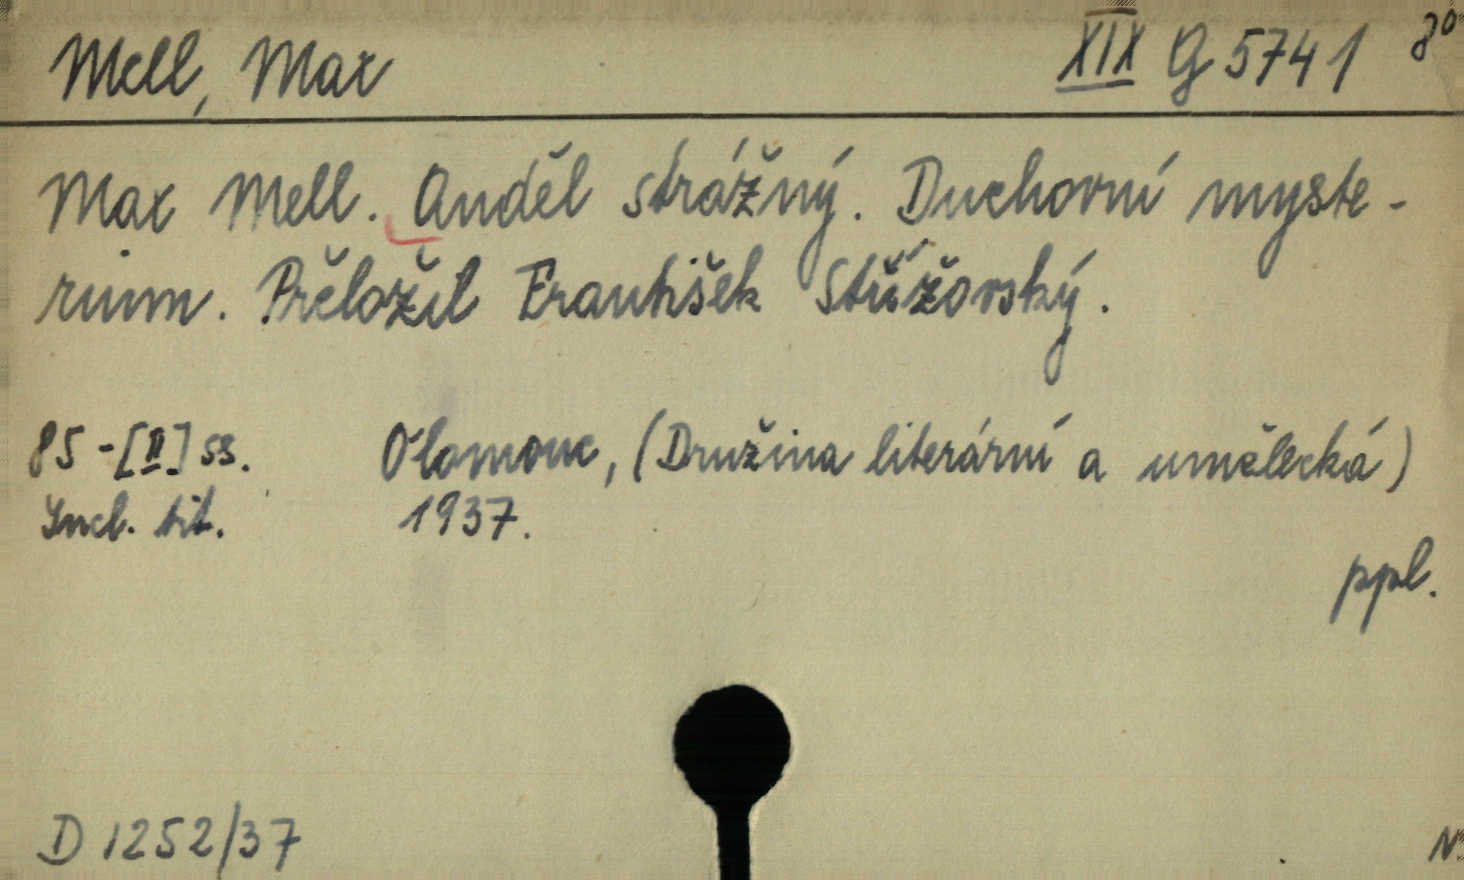 Mell, Max XIX G 5741 8°
Max Mell. Anděl strážný. Duchovní myste-
rium. Přeložil František Střížovský.
85-[II] ss. Olomouc, (Družina literární a umělecká)
Incl. tit. 1937.
ppl.
D 1252/37
N